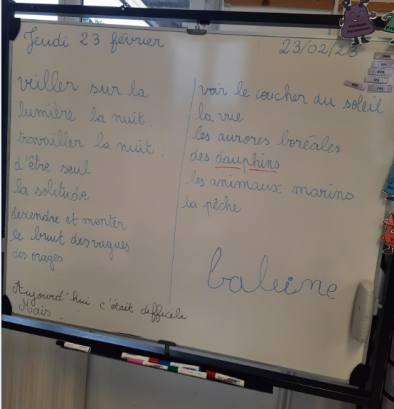 Jeudi 23 février
23/02/23
veiller sur la
lumière la nuit
travailler la nuit.
d'être seul
la solitude
descendre et monter
le bruit des vagues
des orages
voir le coucher du soleil
la vue
les aurores boréales
des dauphins
les animaux marins
la pêche
baleine
Aujourd'hui c'était difficile
Mais